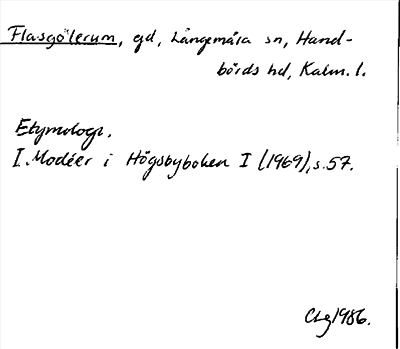 Flasgölerum, gd, Långemåla sn, Hand-
börds hd, Kalm. l.
Etymologi.
I. Modéer i Högsbyboken I (1969), s. 57.
CLg 1986.